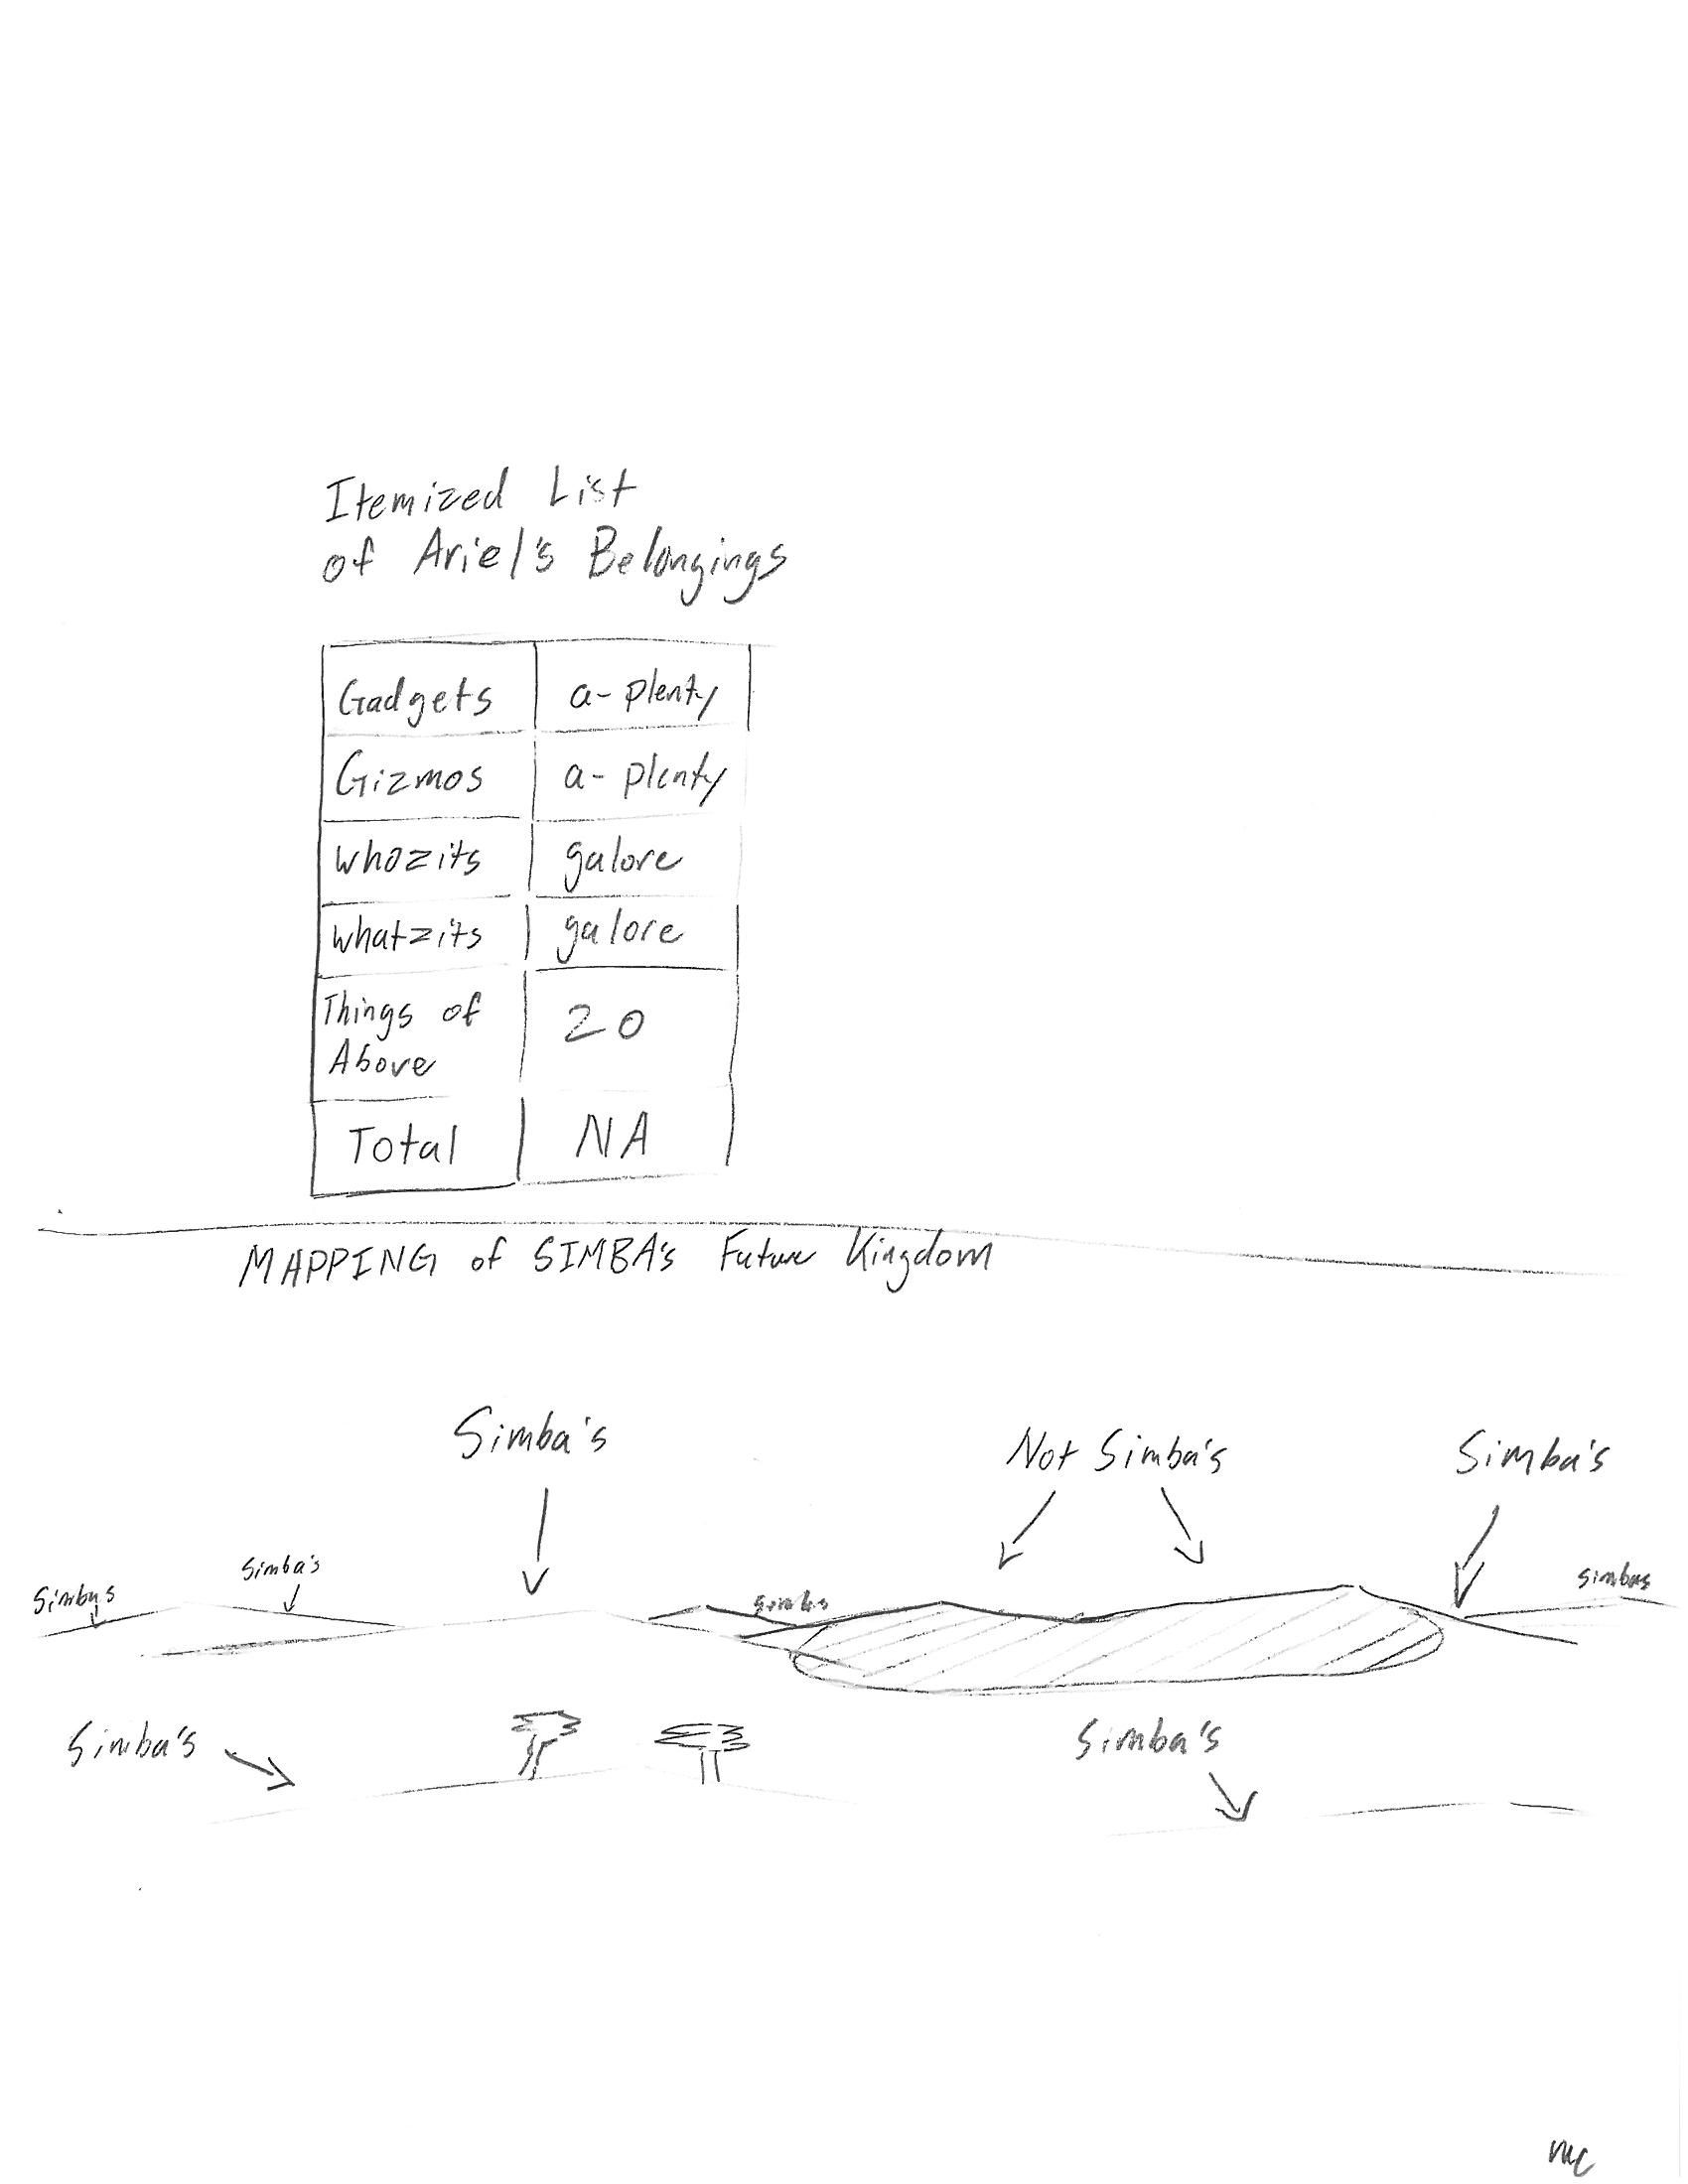 Itemized List
of Ariel's Belongings
Gadgets a-plenty
Gizmos a-plenty
whozits galore
whatzits galore
Things of
Above
20
Total NA
MAPPING of SIMBA's Future Kingdom
Simba's
Not Simba's
Simba's
Simbas
Simba's
Simbas
Simbas
Simba's
Simba's
MC